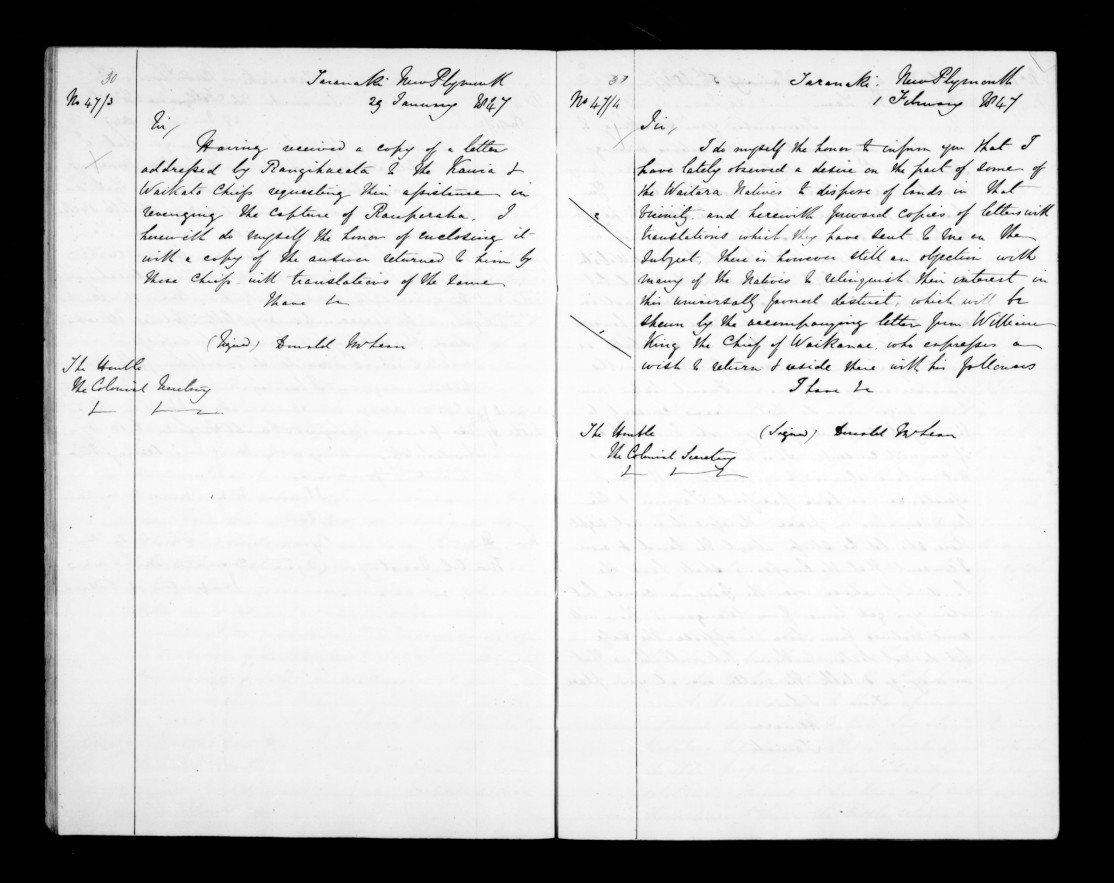 30
Taranaki New Plymouth
No 47/3
29 January 1847
Sir,
Having received a copy of a letter
addressed by Rangihaeata to the Kawia &
Waikato Chiefs requesting their assistance in
revenging the capture of Rauperaha. I
herewith do myself the honor of enclosing it
with a copy of the answer returned to him by
those Chiefs with translations of the same
I have &c
(Signed) Donald McLean
The Honble
The Colonial Secretary
&c &c
31
Taranaki New Plymouth
No 47/4
1 February 1847
Sir,
I do myself the honor to inform you that I
have lately observed a desire on the part of some of
the Waitara Natives to dispose of lands in that
vicinity, and herewith forward copies of letters with
translations which they have sent to me on the
subject, there is however still an objection with
many of the Natives to relinquish their interest in
this universally formed district; which will be
shewn by the accompanying letter from William
King the Chief of Waikanae, who expresses a
wish to return & reside there with his followers
I have &c
(Signed) Donald McLean
The Honble
The Colonial Secretary
&c &c